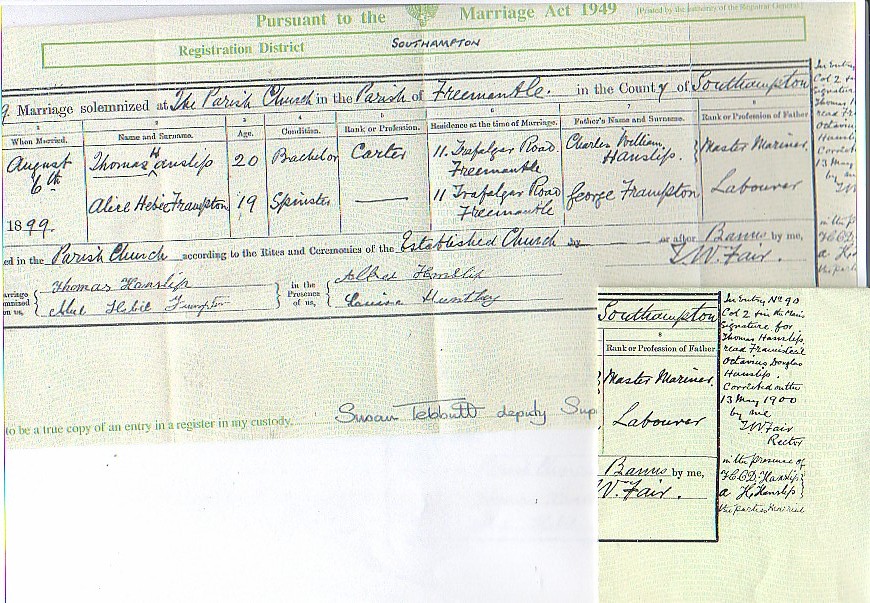 Pursuant to the Marriage Act 1949 [Printed by the authority of the Registrar General]
Registration District SOUTHAMPTON
9. Marriage solemnized at The Parish Church in the Parish of Freemantle. in the County of Southampton
1 2 3 4 5 6 7 8
When Married. Name and Surname. Age. Condition. Rank or Profession. Residence at the time of Marriage. Father's Name and Surname. Rank or Profession of Father
August 6th 1899. Thomas Hanslip 20 Bachelor Carter 11. Trafalgar Road. Freemantle Charles William Hanslip. Master Mariner.
Frampton 19 Spinster 11 Trafalgar Road Freemantle George Frampton Labourer
ed in the Parish Church according to the Rites and Ceremonies of the Established Church by or after Banns by me,
T.W. Fair.
arriage
mnized
on us,
Thomas Hanslip
in the
Presence
of us,
Louisa Huntley
to be a true copy of an entry in a register in my custody. Susan Tebbutt deputy Sup
In Entry
Col 2 +
Signature
Thomas H
read Fra
Octaviu
Hansli
Correct
13 May
by m
in the p
a H
the part
Southampton
8
Rank or Profession of Father
Master Mariner.
Labourer
Banns by me,
W. Fair.
In Entry No 90
Col 2 + in the
Signature for
Thomas Hanslip
read
Octavius Douglas
Hanslip.
Corrected on the
13 May 1900
by me
TW Fair
Rector
in the presence of
F.C.O.D. Hanslip
a H. Hanslip
the parties married